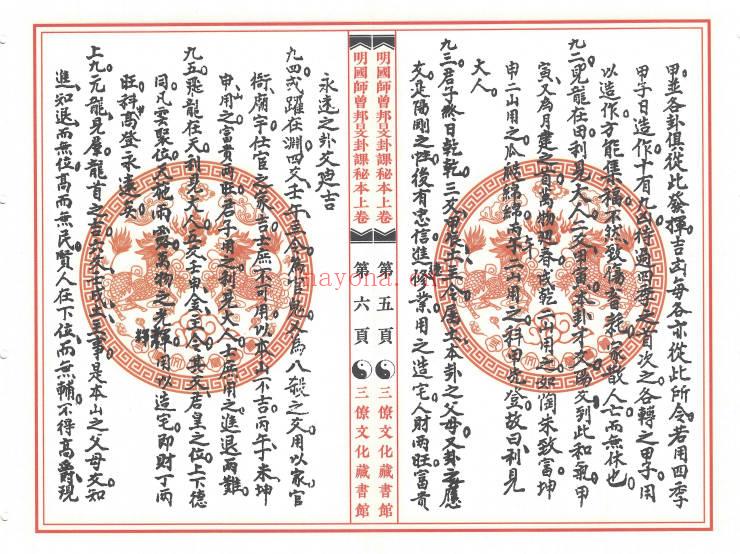 甲並各卦俱從此發揮吉凶每各亦從此所令若用四季
甲子日造作十有九凶待過四季之首次之各轉之甲子用
以造作方能集福不然致傷者耗家散人亡而無休也
九二見龍在田利見大人二爻甲寅本卦才爻陽爻到此和氣甲
寅又為月建之寅萬物迎春戌乾二山用之如陶朱致富坤
申二山用之瓜瓞綿綿丙午二山用之科甲先登故曰利見
大人
九三君子終日乾乾三爻甲辰土三令屬土本卦之父母又卦之應
爻是陽剛之性後有忠信進修業用之造宅人財兩旺富貴
明國師曾邦旻卦課秘本上卷
第五頁
三僚文化藏書館
明國師曾邦旻卦課秘本上卷
第六頁
三僚文化藏書館
永遠之卦爻迪吉
九四或躍在淵四爻壬午三令為官鬼又為八殺之爻用以家官
衙廟宇仕官之家吉士庶不可用以本山不吉丙午未坤
申山用之富貴兩旺君子用之利見大人士庶用之進退兩難
九五飛龍在天利見大人五爻壬申金主令其爻君皇之位上下德
同凡雲聚位天施雨露萬物之光輝用以造宅即財丁兩
旺科高登永遠矣
上九亢龍見群龍首之吉六爻壬戌土主事是本山之父母爻知
進知退而無位高而無民賢人在下位而無輔不得高爵現
nayona.cn